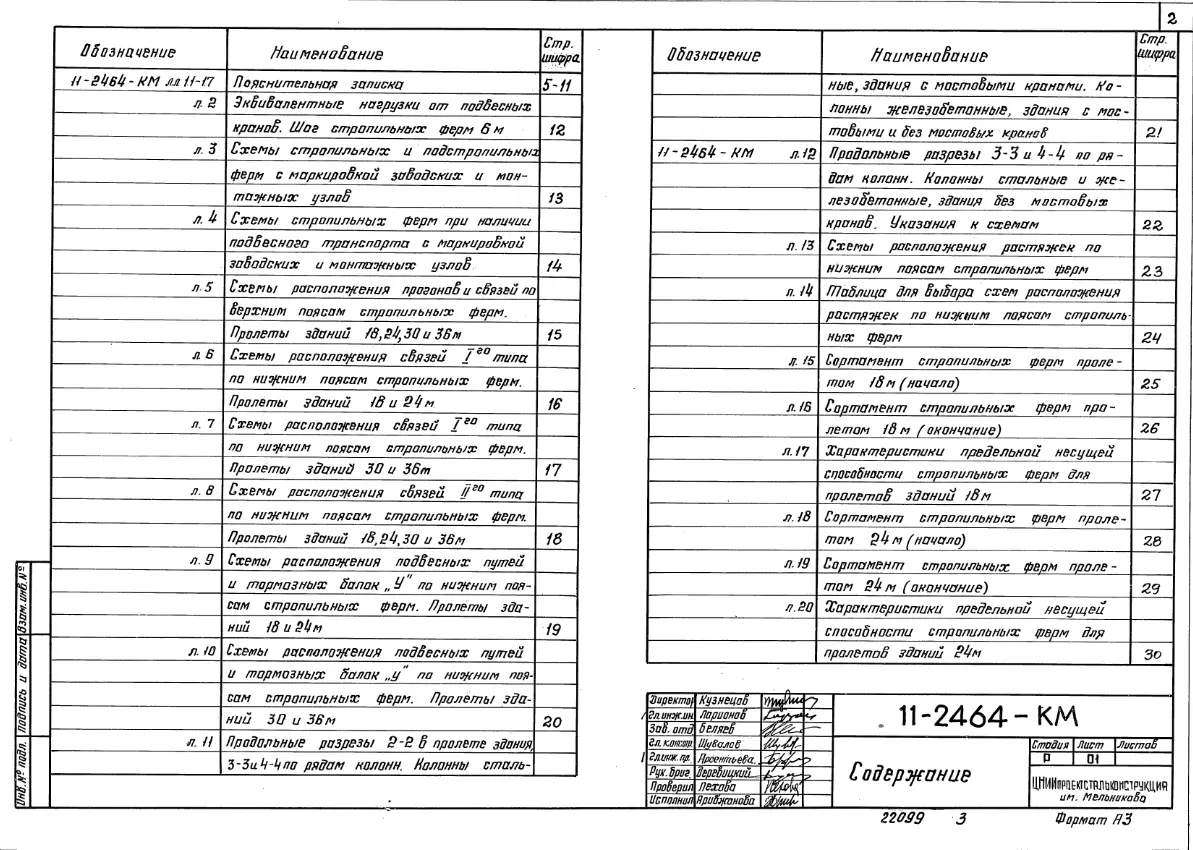 2
Обозначение Наименование Стр. шифра
11-2464-КМ лл 1.1-1.7 Пояснительная записка 5-11
л. 2 Эквивалентные нагрузки от подвесных
кранов. Шаг стропильных ферм 6 м 12
л. 3 Схемы стропильных и подстропильных
ферм с маркировкой заводских и мон-
тажных узлов 13
л. 4 Схемы стропильных ферм при наличии
подвесного транспорта с маркировкой
заводских и монтажных узлов 14
л. 5 Схемы расположения прогонов и связей по
верхним поясам стропильных ферм.
Пролеты зданий 18,24,30 и 36м 15
л. 6 Схемы расположения связей I го типа
по нижним поясам стропильных ферм.
Пролеты зданий 18 и 24м 16
л. 7 Схемы расположения связей I го типа
по нижним поясам стропильных ферм.
Пролеты зданий 30 и 36м 17
л. 8 Схемы расположения связей II го типа
по нижним поясам стропильных ферм.
Пролеты зданий 18,24,30 и 36м 18
л. 9 Схемы расположения подвесных путей
и тормозных балок „У" по нижним поя-
сам стропильных ферм. Пролеты зда-
ний 18 и 24м 19
л. 10 Схемы расположения подвесных путей
и тормозных балок „у" по нижним поя-
сам стропильных ферм. Пролеты зда-
ний 30 и 36м 20
л. 11 Продольные разрезы 2-2 в пролете здания,
3-3 и 4-4 по рядам колонн. Колонны сталь-
Обозначение Наименование Стр. шифра
ные, здания с мостовыми кранами. Ко-
лонны железобетонные, здания с мос-
товыми и без мостовых кранов 21
11-2464-КМ л.12 Продольные разрезы 3-3 и 4-4 по ря-
дам колонн. Колонны стальные и же-
лезобетонные, здания без мостовых
кранов. Указания к схемам 22
л. 13 Схемы расположения растяжек по
нижним поясам стропильных ферм 23
л. 14 Таблица для выбора схем расположения
растяжек по нижним поясам стропиль-
ных ферм 24
л. 15 Сортамент стропильных ферм проле-
том 18м (начало) 25
л. 16 Сортамент стропильных ферм про-
летом 18м (окончание) 26
л. 17 Характеристики предельной несущей
способности стропильных ферм для
пролетов зданий 18м 27
л. 18 Сортамент стропильных ферм проле-
том 24м (начало) 28
л. 19 Сортамент стропильных ферм проле-
том 24м (окончание) 29
л. 20 Характеристики предельной несущей
способности стропильных ферм для
пролетов зданий 24м 30
Взам.инв.№
Подпись и дата
Инв.№ подл.
Директор Кузнецов
Гл.инж.ин. Ларионов
Зав. отд Беляев
Гл.констр. Шувалов
Гл.инж.пр.
Рук. бриг. Деревицкий
Проверил Пехова
Исполнил
11-2464-КМ
Содержание
Стадия Лист Листов
Р 01
ЦНИИпроектстальконструкция
им. Мельникова
22099 3 Формат А3